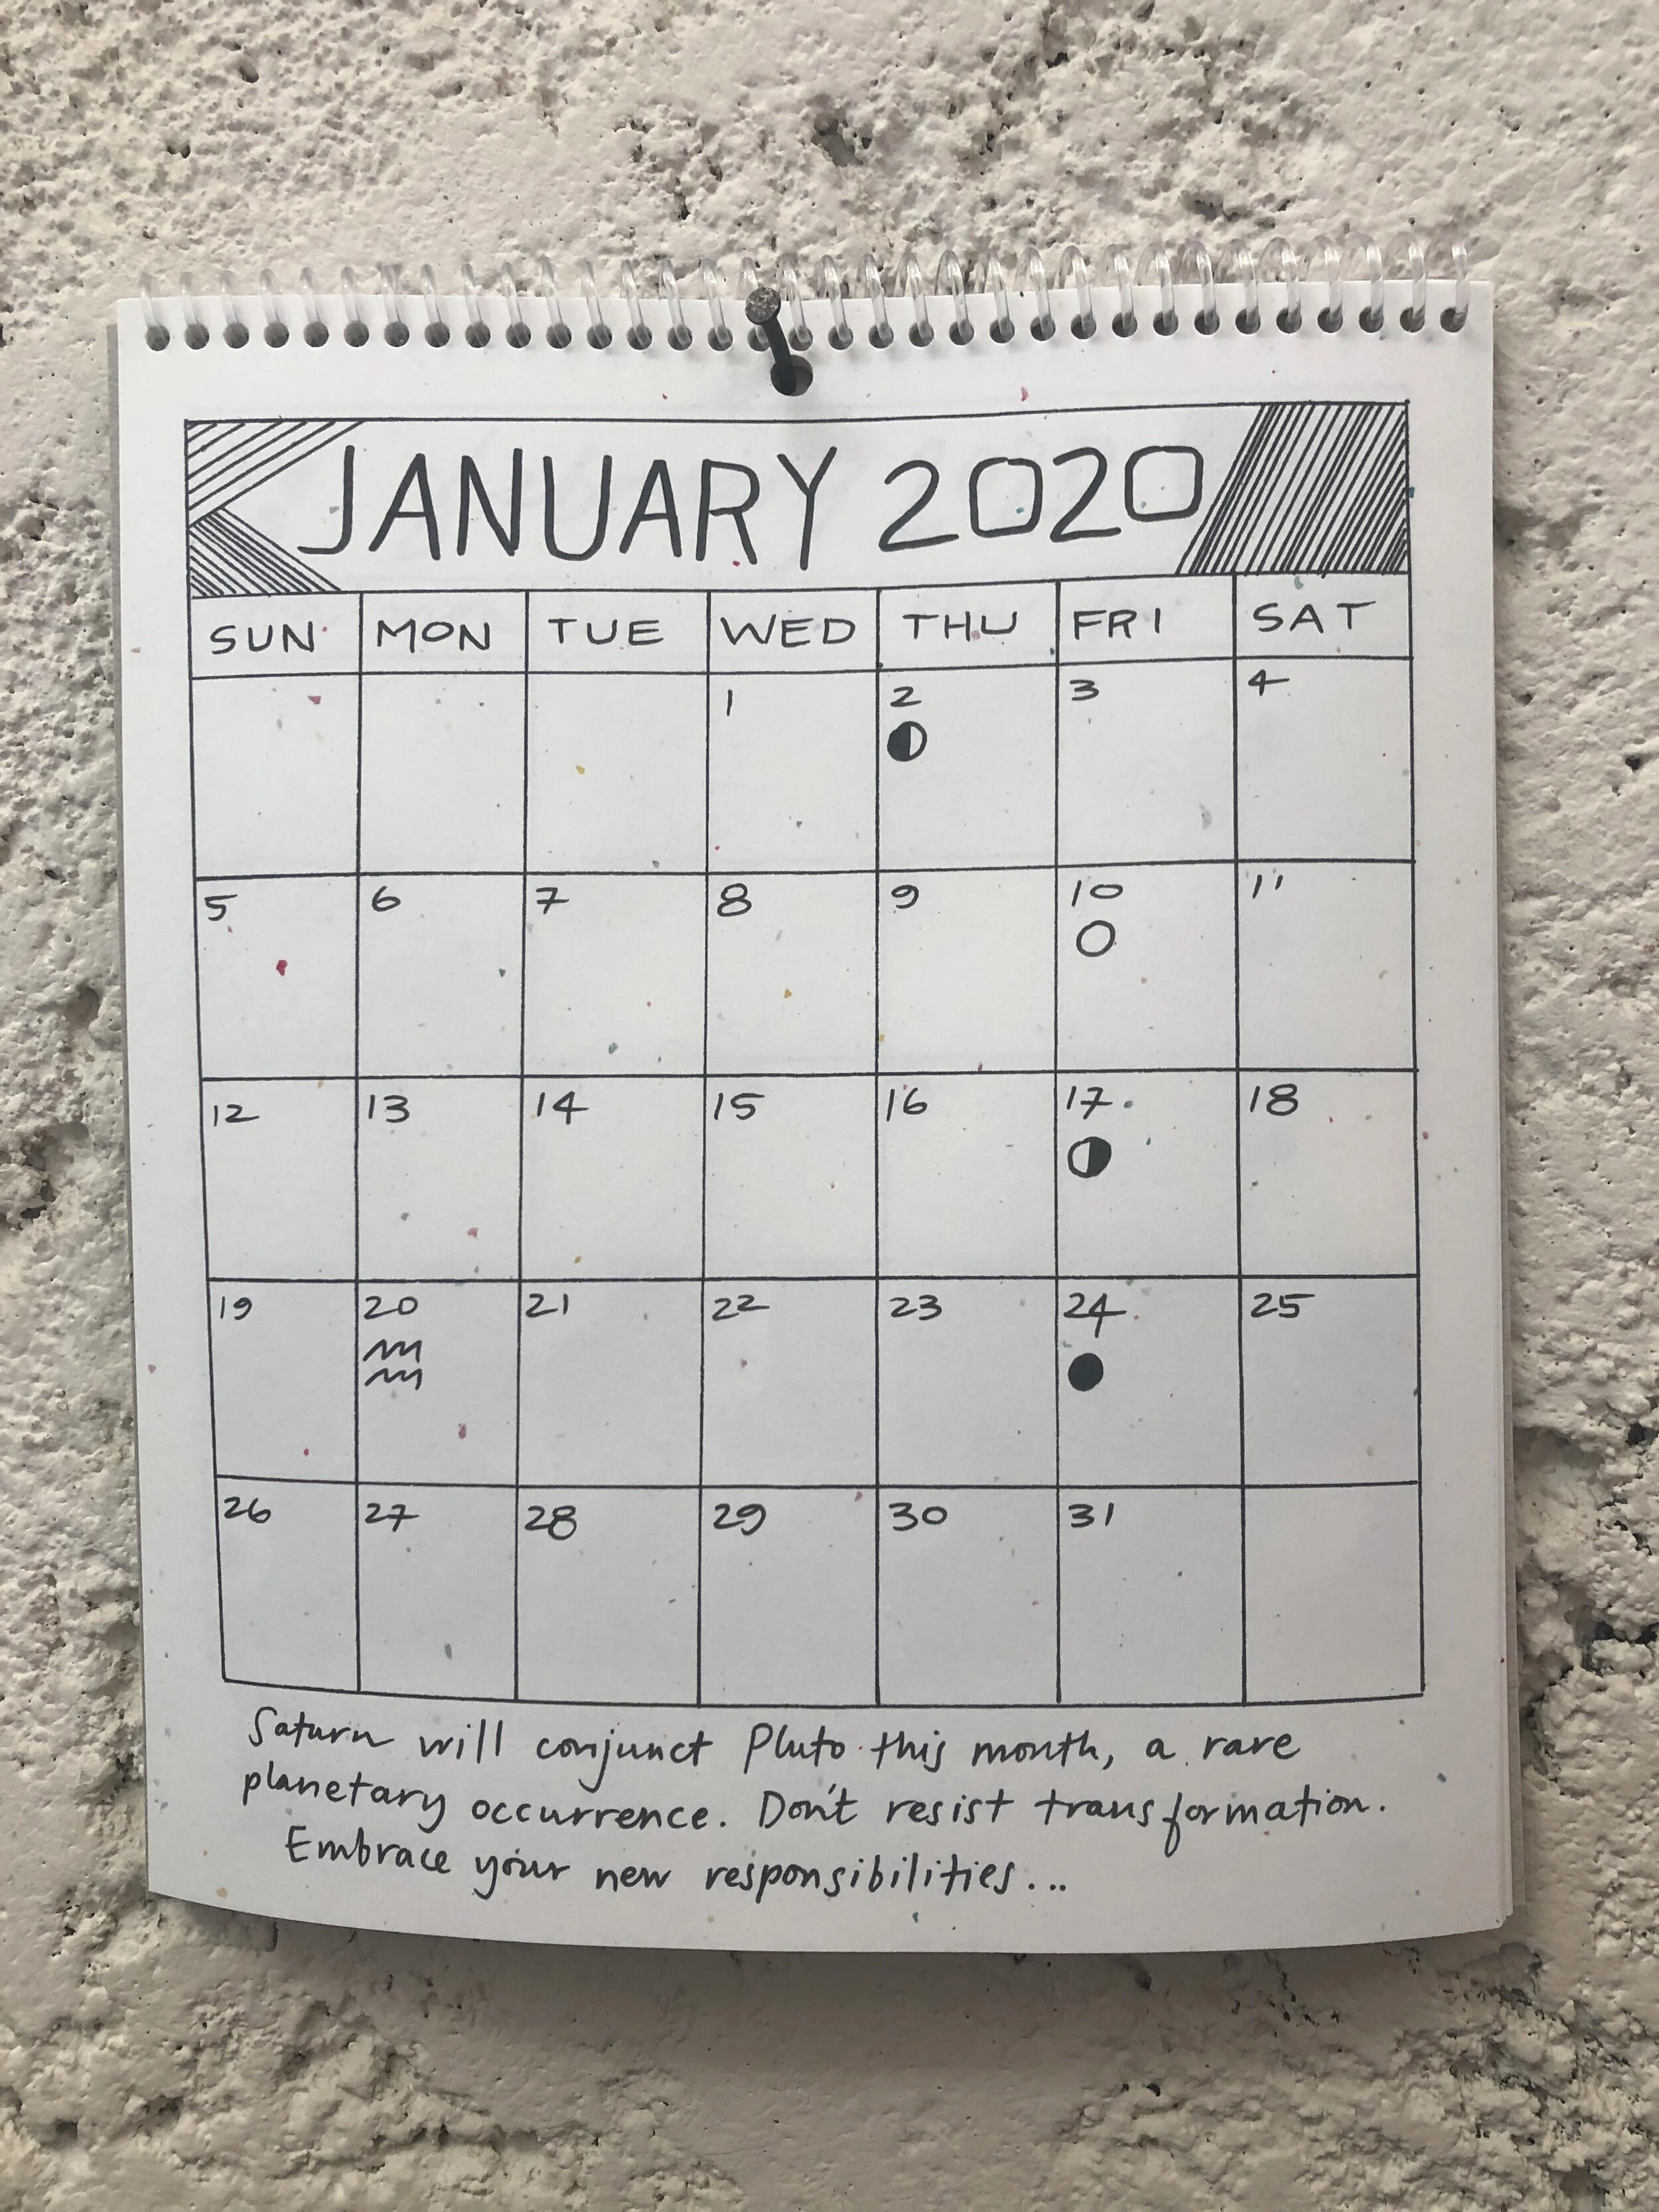 JANUARY 2020
SUN MON TUE WED THU FRI SAT
1 2 3 4
5 6 7 8 9 10 11
12 13 14 15 16 17 18
19 20 21 22 23 24 25
26 27 28 29 30 31
Saturn will conjunct Pluto this month, a rare
planetary occurrence. Don't resist transformation.
Embrace your new responsibilities...